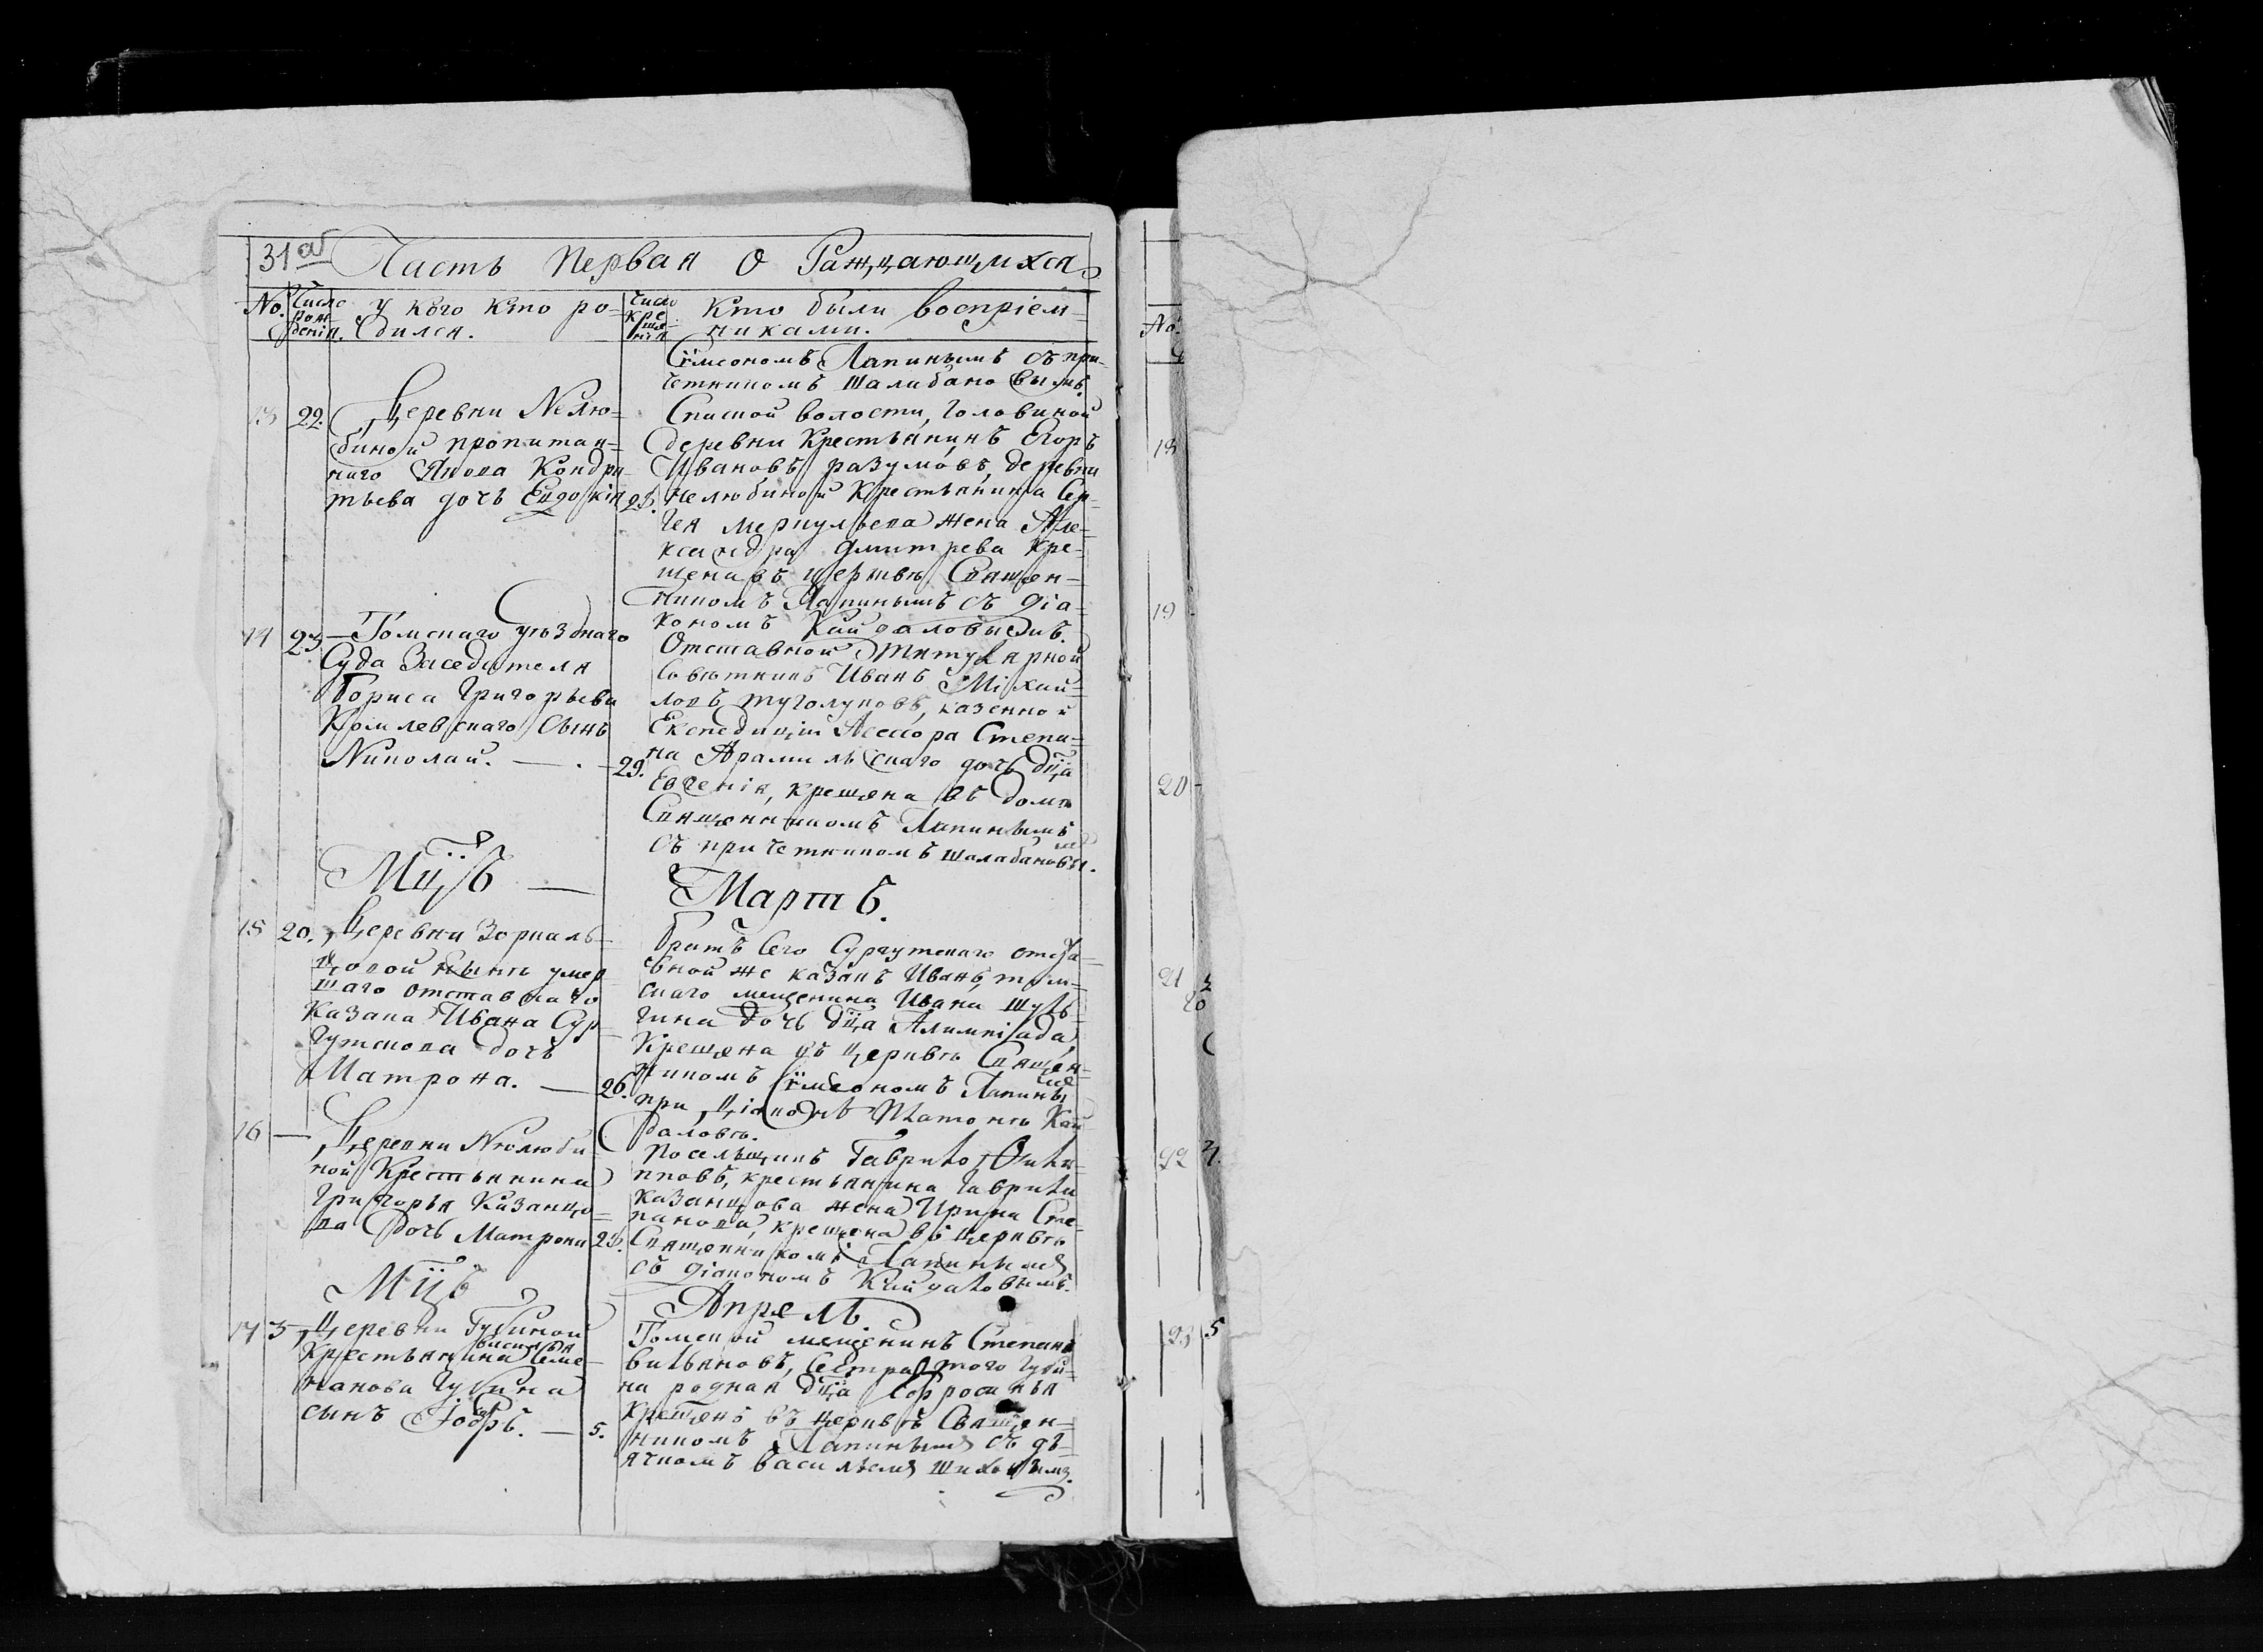 31 аб Часть первая о Раждающихся
No. Число рож- денія. у кого кто ро- дился. Число кре- ще- нія Кто были воспріем- никами.
Сѵмеономъ Лапинымъ съ при-
четникомъ Шалабановымъ.
13 22. Деревни Нелю-
биной пропитан-
наго Якова Кондра-
тьева дочь Евдокія 25.
Спаской волости, Головиной
деревни Крестьянинъ Егоръ
Ивановъ разумовъ, деревни
нелюбиной Крестьянина Сер-
гея меркульева жена Але-
ксандра Дмитрева кре-
щена въ церквѣ Священ-
никомъ Лапинымъ съ діа-
кономъ Кайдаловымъ.
14 23 Томскаго уѣзднаго
Суда Заседателя
Бориса Григорьева
Комлевскаго Сынъ
Николай. — . — 29.
Отставной Титулярной
Совѣтникъ Иванъ Міхай-
ловъ туголуковъ, казенной
Експедиціи Ассесора Степа-
на Арамильскаго дочь дца
Евгенія, крещена въ домѣ
Священникомъ Лапинымъ
съ причетникомъ шалабановымъ.
Мцъ — Мартъ.
15 20. Деревни Зоркаль-
цовой нынѣ умер
шаго отставнаго
Казака Ивана Сур-
гутскова дочь
Матрона. — 26.
братъ Сего Сургутскаго отста-
вной же казакъ Иванъ, том-
скаго мещенина Ивана Шуль-
гина дочь дца Алимпіада,
Крещена въ церквѣ Священ-
никомъ Сѵмеономъ Лапинымъ
при Діаконѣ Платонѣ Кай-
даловѣ.
16 — Деревни Нелюби
ной Крестьянина
Григорья Казанцо-
ва дочь Матрона 25.
Посельщикъ Гаврило Фили-
пповъ, крестьянина Гаврила
казанцова жена Ирина Сте-
панова, крещена въ церквѣ
Священникомъ Лапинымъ
съ діакономъ Кайдаловымъ.
Мцъ Апрель
17 3 Деревни Губиной
Крестьянина василья Семе-
нанова Губина
сынъ — 5.
Томской мещенинъ Степанъ
вильяновъ, Сестра того Губи-
на родная дца Ефросинья
крещенъ въ церквѣ Священ-
никомъ Лапинымъ съ дь-
ячкомъ васильемъ шиховымъ.
No.
18
19
20
21
22
23 5